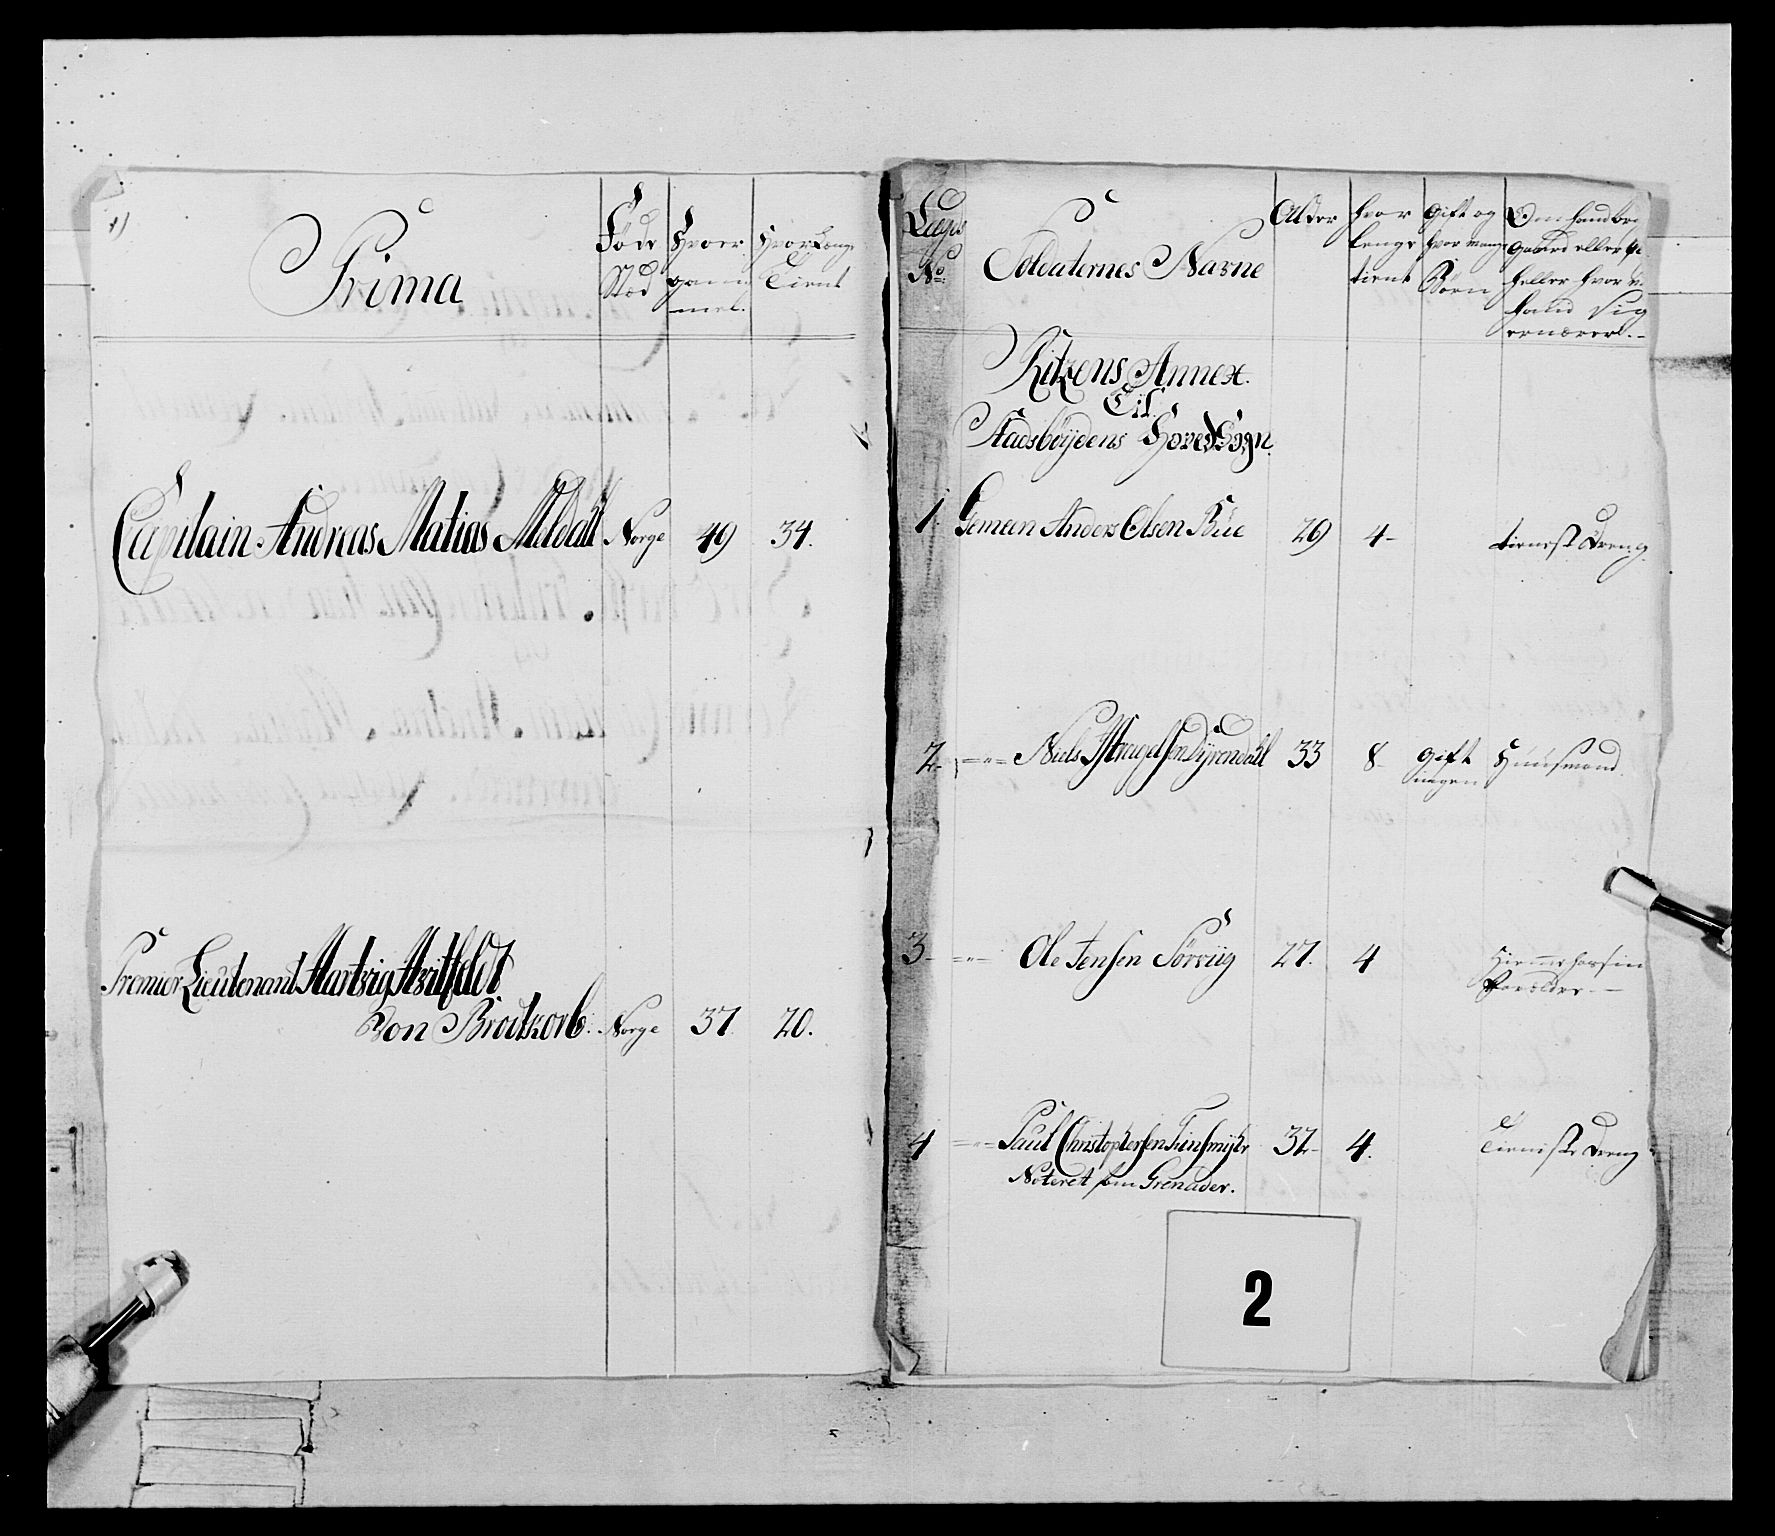 1)
Prima
Føde Stæd
Hvor gam mel.
Hvor Længe Tient
Capitain Andreas Matias Meldahl Norge 49 34.
Premier Lieutenant Hartvig
Von Brodtkorb. Norge 37. 20.
Laegs No.
Soldaternes Navne
Alder
hvor lenge tient
Gift og hvor mange Børn
Om hand
Gaard eller
heller hvor
hand Sig
ernærer.
Ritzens Annex.
Til.
Stadsbøydens Hoved Sogn.
1. Gemeen Anders Olsen Rüe 29 4- tienest Dreng
2. Niels Dÿrendahl 33 8- Gift ingen Huusmand.
3- Ole Jensen Sørviig 27. 4 Hiemme hos sin
Forældre.
4 Paul Christophersen 32- 4. Tieniste Dreng
Noteret som Grenader.
2